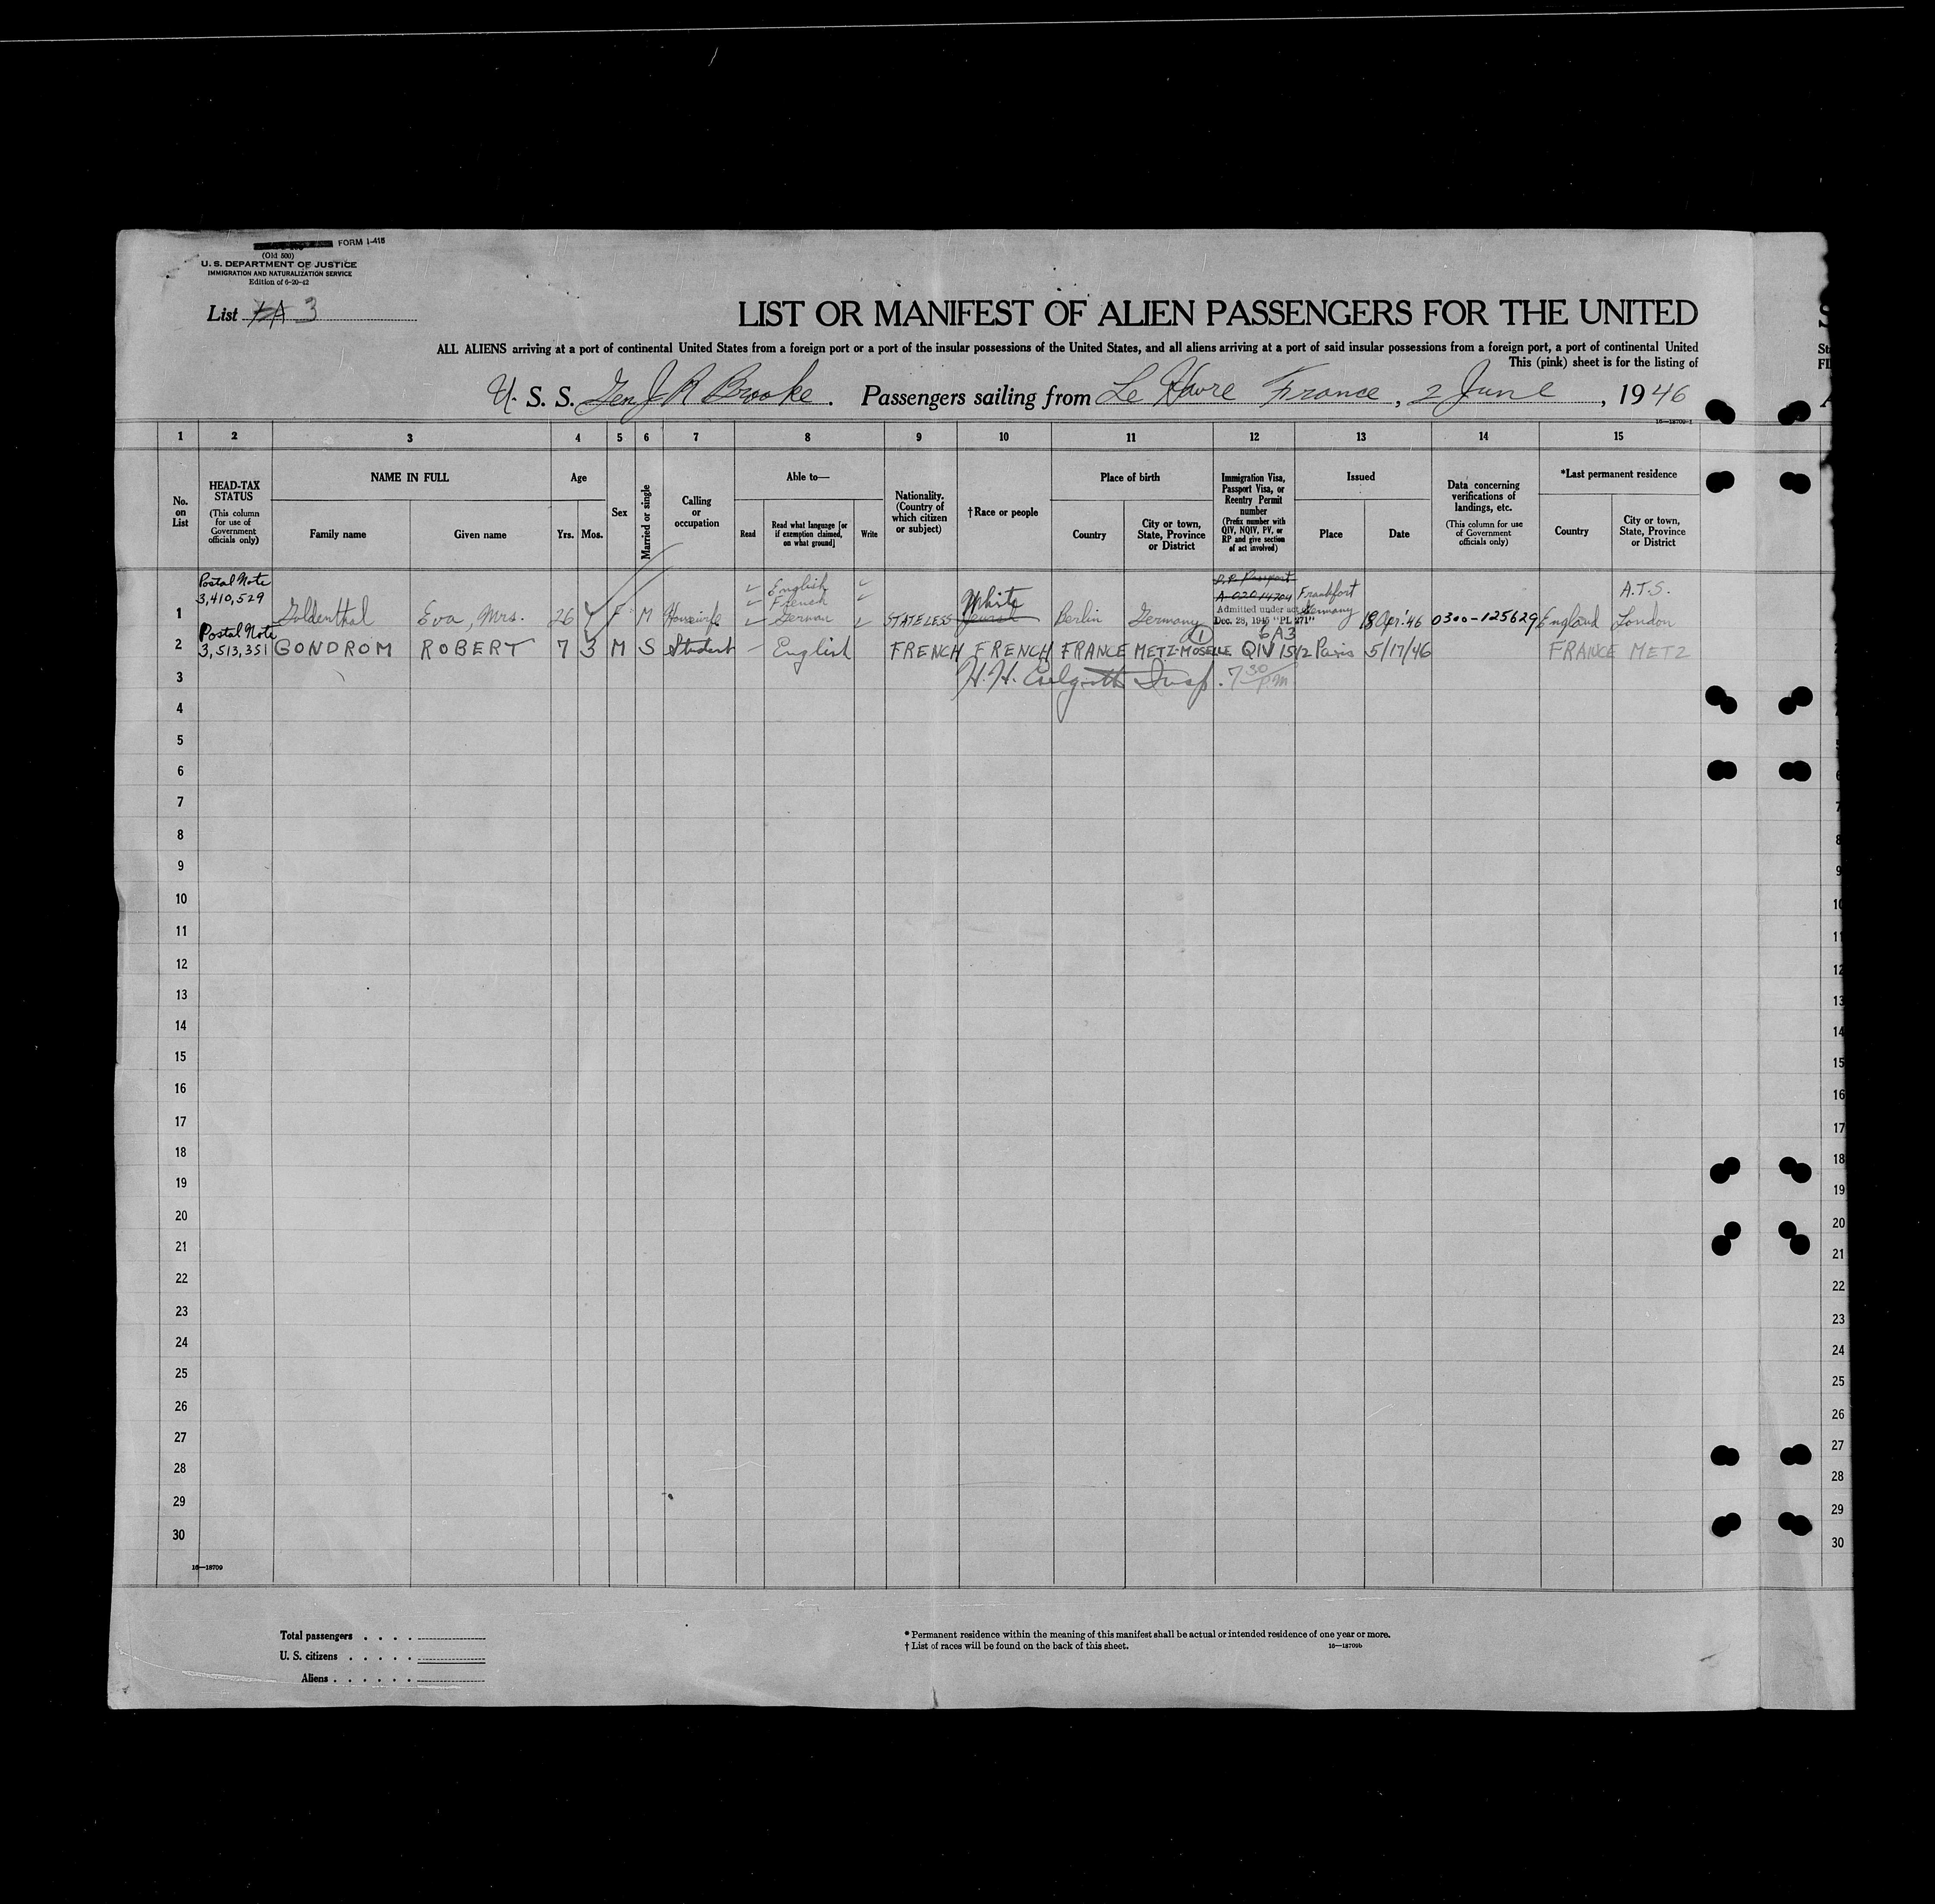 FORM I-415
(Old 500)
U. S. DEPARTMENT OF JUSTICE
IMMIGRATION AND NATURALIZATION SERVICE
Edition of 6-20-42
List 3
LIST OR MANIFEST OF ALIEN PASSENGERS FOR THE UNITED
ALL ALIENS arriving at a port of continental United States from a foreign port or a port of the insular possessions of the United States, and all aliens arriving at a port of said insular possessions from a foreign port, a port of continental United
This (pink) sheet is for the listing of
U. S. S. Gen J R Brooke. Passengers sailing from Le Havre France, 2 June, 1946
16—18709-1
1 2 3 4 5 6 7 8 9 10 11 12 13 14 15
No. on List
HEAD-TAX STATUS (This column for use of Government officials only)
NAME IN FULL
Family name Given name
Age
Yrs. Mos.
Sex
Married or single
Calling or occupation
Able to—
Read Read what language [or if exemption claimed, on what ground] Write
Nationality. (Country of which citizen or subject)
†Race or people
Place of birth
Country City or town, State, Province or District
Immigration Visa, Passport Visa, or Reentry Permit number (Prefix number with QIV, NQIV, PV, or RP and give section of act involved)
Issued
Place Date
Data concerning verifications of landings, etc. (This column for use of Government officials only)
*Last permanent residence
Country City or town, State, Province or District
Postal Note 3,410,529
1 Goldenthal Eva, Mrs. 26 F M Housewife English French German STATELESS White Jewish Berlin Germany A-020 14704 Admitted under act Dec. 28, 1945 "PL 271" Frankfort Germany 18 Apr '46 0300-125629 England A.T.S. London
Postal Note 3,513,351
2 GONDROM ROBERT 7 3 M S Student — English FRENCH FRENCH FRANCE METZ-MOSELLE 6A3 QIV 1512 Paris 5/17/46 FRANCE METZ
3 H.H. Insp. 7 30 pm
4
5
6
7
8
9
10
11
12
13
14
15
16
17
18
19
20
21
22
23
24
25
26
27
28
29
30
16—18709
Total passengers
U. S. citizens
Aliens
* Permanent residence within the meaning of this manifest shall be actual or intended residence of one year or more.
† List of races will be found on the back of this sheet.
16—18709b